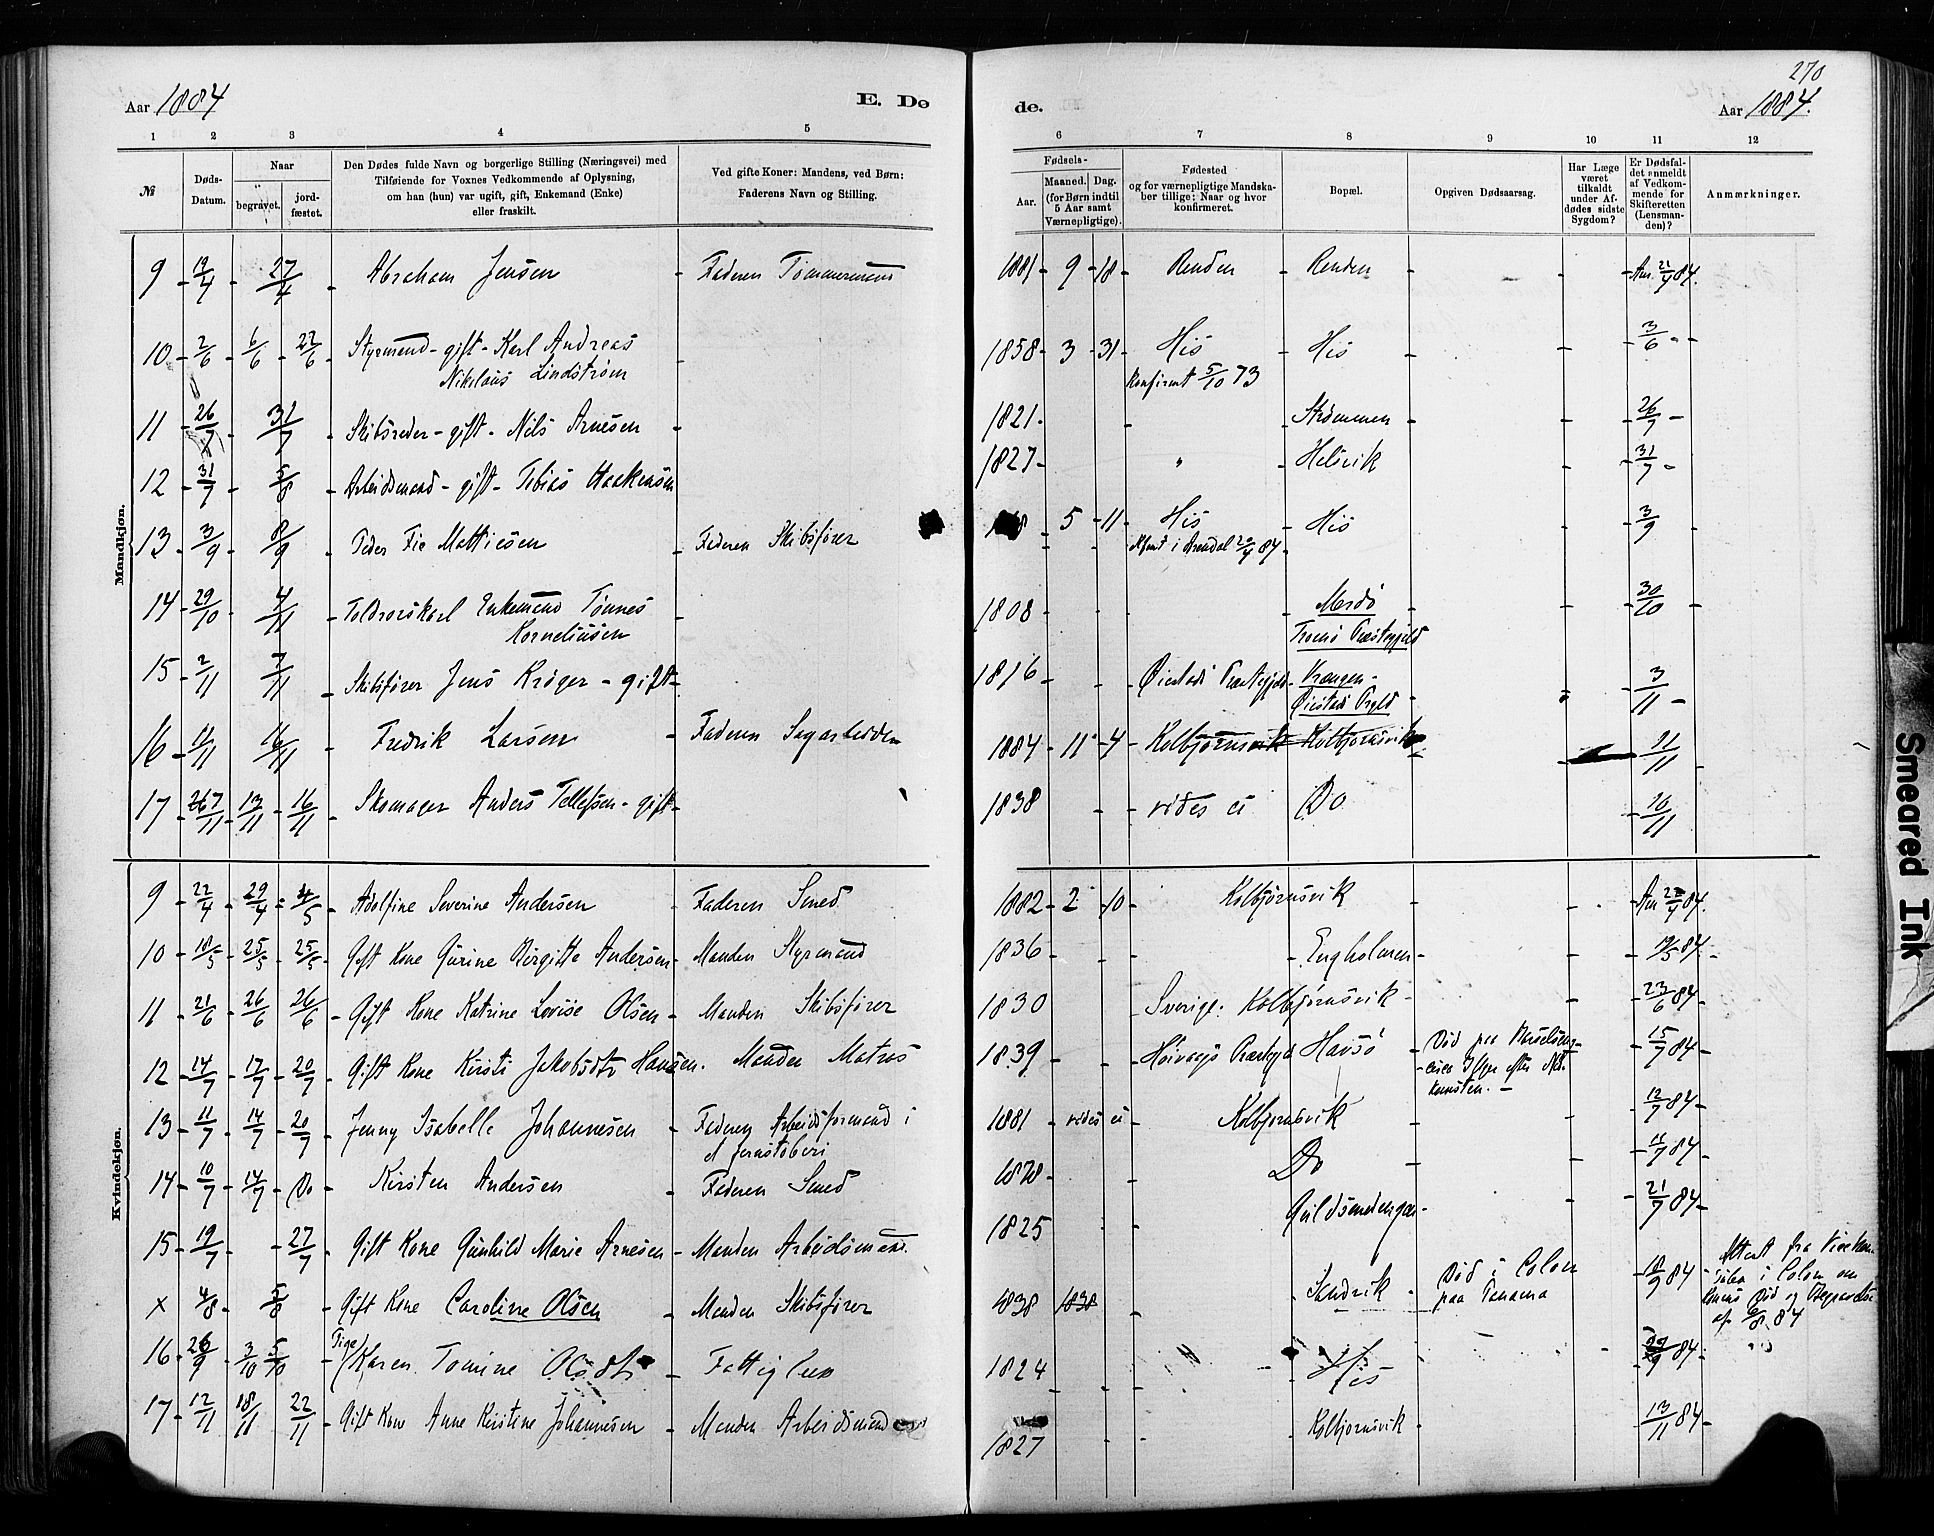 270
Aar 1884
E. Dø
de.
Aar 1884.
1 2 3 4 5
6 7 8 9 10 11 12
№
Døds-
Datum.
Naar
begravet.
jord-
fæstet.
Den Dødes fulde Navn og borgerlige Stilling (Næringsvei) med
Tilføiende for Voxnes Vedkommende af Oplysning,
om han (hun) var ugift, gift, Enkemand (Enke)
eller fraskilt.
Ved gifte Koner: Mandens, ved Børn:
Faderens Navn og Stilling.
Fødsels-
Aar.
Maaned. Dag.
(for Børn indtil
5 Aar samt
Værnepligtige).
Fødested
og for værnepligtige Mandska-
ber tillige: Naar og hvor
konfirmeret.
Bopæl.
Opgiven Dødsaarsag.
Har Læge
været
tilkaldt
under Af-
dødes sidste
Sygdom?
Er Dødsfal-
det anmeldt
af Vedkom-
mende for
Skifteretten
(Lensman-
den)?
Anmærkninger.
Mandkjøn.
9 - 19/4 - 27/4 - Abraham Jensen - Faderen Tømmermand 1881 - 9 - 18 - Renden - Renden - Anm. 21/4 84.
10 - 2/6 - 6/6 - 22/6 - Styrmand - gift - Karl Andreas
Nikolaus Lindstrøm
1858 - 3 - 31 - His - His - 3/6 - -
Konfirmt 5/10 73
11 - 26/7 - 31/7 - Skibsreder - gift - Nils Arnesen - 1821 - Strømmen - 26/7 -
12 - 31/7 - 5/8 - Arbeidsmand - gift - Tobias Haakensen 1827 - " - Helsvik - 31/7 -
13 - 3/9 - 8/9 - Peder Fie Mathiesen - Faderen Skibsfører 5 - 11 - His - His - 3/9
Kfmt i Arendal 20/4 84
14 - 29/10 - 4/11 - Toldrorskarl Enkemand Tønnes
Korneliusen
1808 - Merdø - 30/10 -
Tromø Præstegjeld
15 - 2/11 - 7/11 - Skibsfører Jens Krøger - gift - 1816 - Øiestads Præstegjeld - Vrengen - 3/11 -
Øiestads Pgjld
16 - 11/11 - 16/11 - Fredrik Larsen - Faderen Sagarbeider 1884 - 11 - 4 - Kolbjørnsvik - Kolbjørnsvik - 11/11
17 - 7/11 - 13/11 - 16/11 - Skomager Anders Tellefsen - gift - 1838 - vides ei - Do - 16/11
Kvindekjøn.
9 - 22/4 - 29/4 - 4/5 - Adolfine Severine Andersen - Faderen Smed 1882 - 2 - 10 - Kolbjørnsvik - Anm 22/4 84.
10 - 18/5 - 25/5 - 25/5 - Gift Kone Gurine Birgitte Andersen - Manden Styrmand 1836 - Engholmen - 19/5 84.
11 - 21/6 - 26/6 - 26/6 - Gift Kone Katrine Lovise Olsen - Manden Skibsfører 1830 - Sverige. Kolbjørnsvik - 23/6 84
12 - 14/7 - 17/7 - 20/7 - Gift Kone Kirsti Jakobsdtr Hansen. Manden Matros 1839 - Høivaags Præstegjd - Havsø - Død paa Barselseng - 15/7 84
13 - 11/7 - 14/7 - 20/7 - Jenny Isabelle Johannesen - Faderen Arbeidsformand i
et Jernstøberi
1881 - vides ei - Kolbjørnsvik - 12/7 84
14 - 10/7 - 14/7 - Do - Kirsten Andersen - Faderen Smed 1878 - Do - 11/7 84
15 - 19/7 - 27/7 - Gift Kone Gunhild Marie Arnesen - Manden Arbeidsmand. 1825 - Guldsmedengen - 21/7 84
x 4/8 - 5/8 - Gift Kone Caroline Olsen - Manden Skibsfører 1838 1838 - Sandvik - Død i Colon
paa Panama
18/9 84
Attest fra Vicekon-
sulen i Colon om
Konens Død og Begravelse
af 6/8 84
16 - 26/9 - 3/10 5/10 - Pige Karen Tomine Olsdtr - Fattiglem 1824 - His - 84
17 - 12/11 18/11 22/11 - Gift Kone Anne Kirstine Johannesen - Manden Arbeidsmand 1827 - Kolbjørnsvik - 13/11 84
Smeared Ink